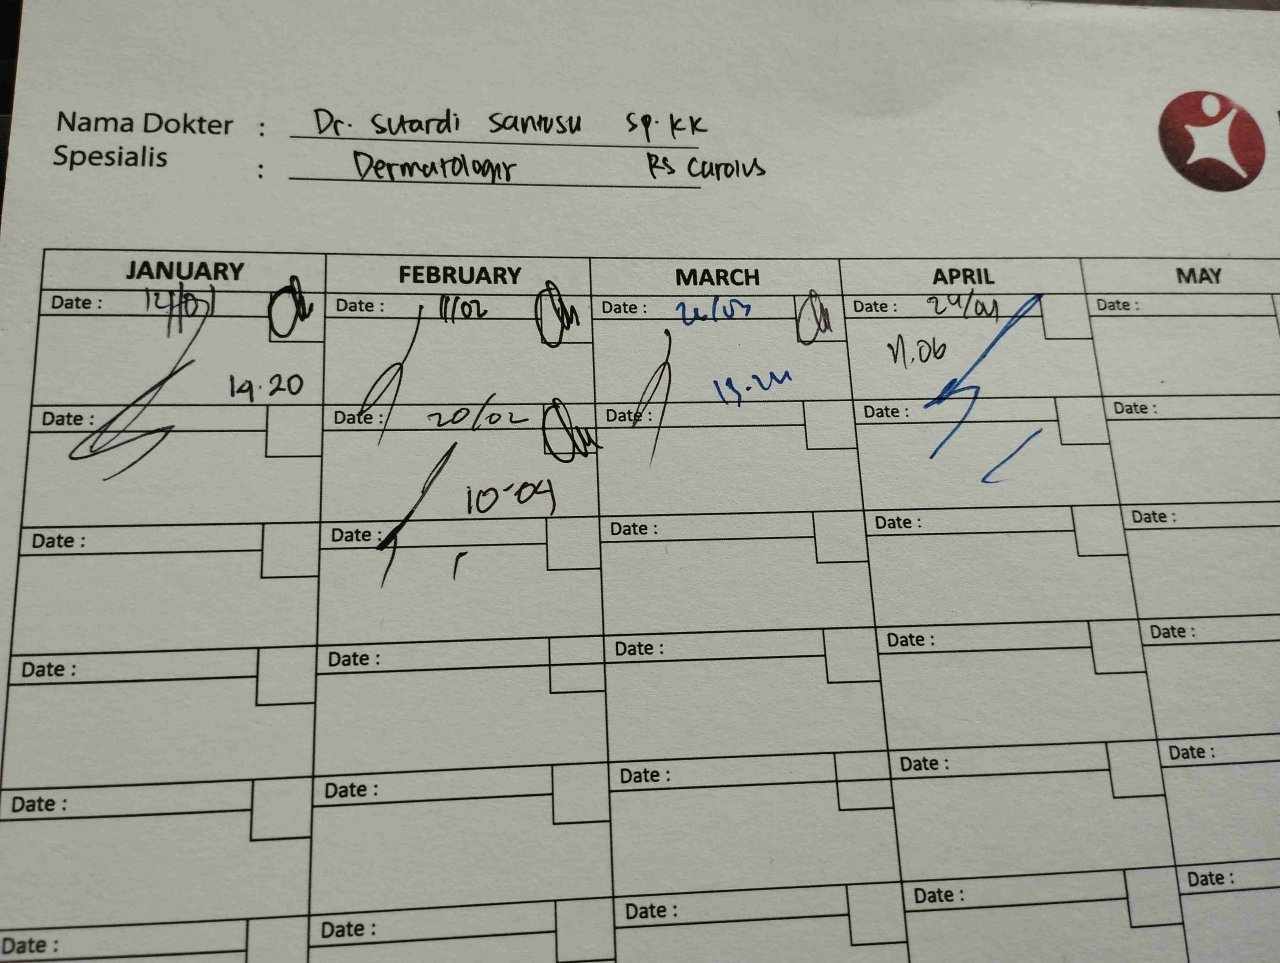 Nama Dokter : Dr. Sutardi Santusu Sp.KK
Spesialis : Dermatologir RS Carolus
JANUARY FEBRUARY MARCH APRIL MAY
Date : 12/01 Date : 11/02 Date : Date : 24/04 Date :
19.20 11.06
Date : Date : 20/02 Date : Date : Date :
10-04
Date : Date : Date : Date : Date :
Date : Date : Date : Date : Date :
Date : Date : Date : Date : Date :
Date : Date : Date : Date : Date :